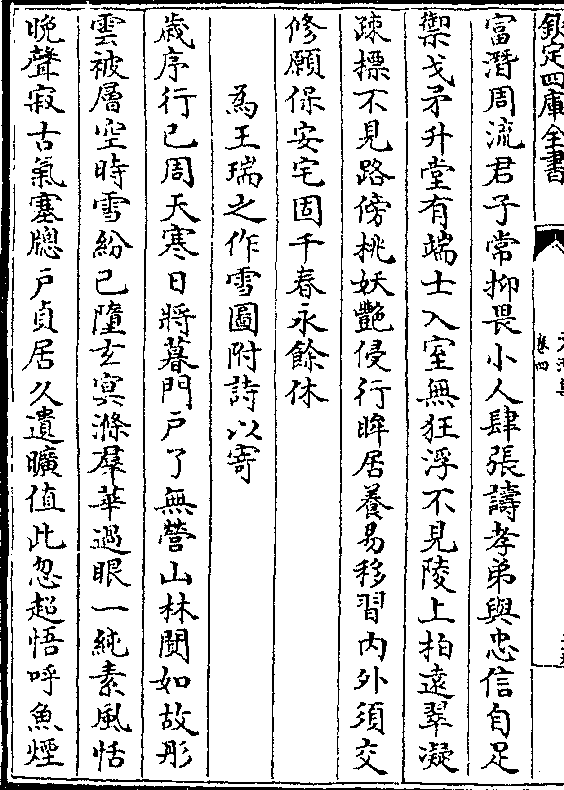 欽定四庫全書
卷四
富潛周流君子常抑畏小人肆張譸孝弟與忠信自足
禦戈矛升堂有端士入室無狂浮不見陵上柏遠翠凝
疎標不見路傍桃妖艷侵行眸居養易移習内外須交
修願保安宅固千春永餘休
為王瑞之作雪圖附詩以寄
歲序行已周天寒日將暮門戶了無營山林閴如故彤
雲被層空時雪紛已墮玄冥滌羣華過眼一純素風恬
晚聲寂古氣塞牕戶貞居久遺曠值此忽超悟呼魚煙